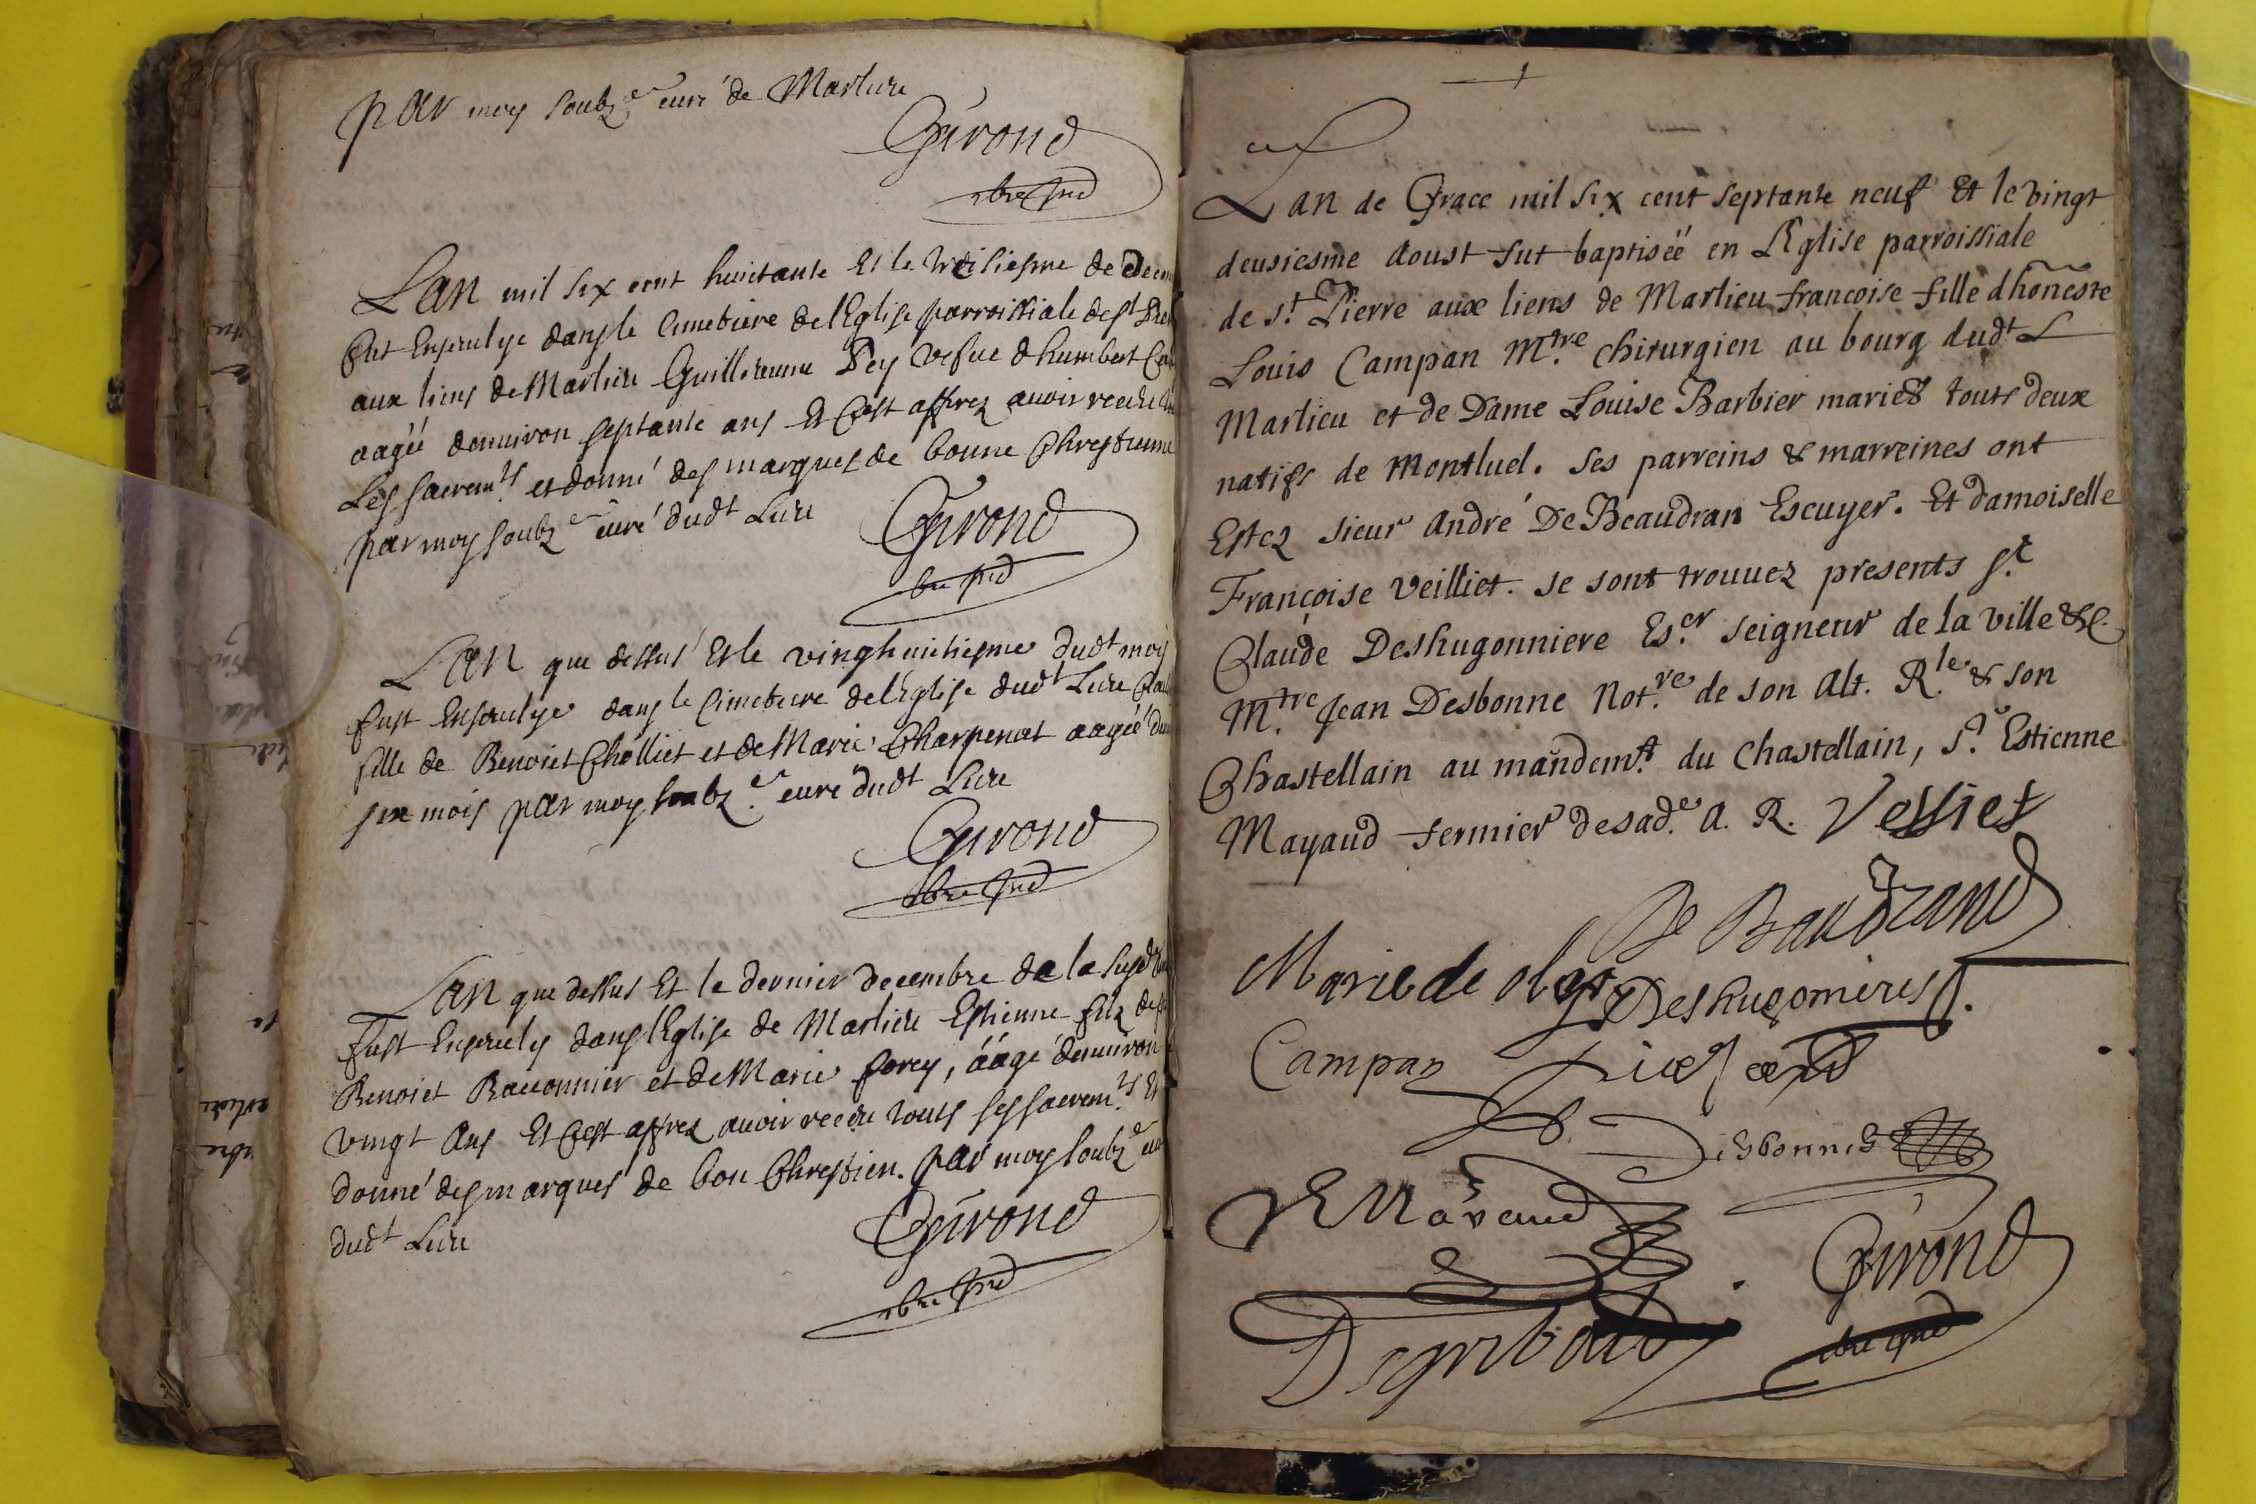 par moy soubz.é curé de Marlieu
Girond
Lan mil six cent huictante Et le treisiesme de
fut Enseuelye dans le Cimetiere de lEglise parroissiale de st
aux liens de Marlieu Guillermine Pey vefue dhumbert
aagée denuiron septante ans Et Cest affrez auoir receu
Les sacrem.ts et donné des marques de bonne Chrestienne
par moy soubz.é curé dudt Lieu
Girond
Lan que dessus Et le vinghuictiesme dudt mois
fust Enseulye dans le Cimetiere de lEglise dudt Lieu
fille de Benoist Cholliet et de Marie Charpenat aagée
six mois par moy soubz.é curé dudt Lieu
Girond
Lan que dessus Et le dernier decembre de la
fust Enseuely dans lEglise de Marlieu Estienne filz
Benoist Bauonnier et de Marie forey, áágé denuiron
vingt Ans Et Cest affrez auoir receu touts ses sacrem.ts Et
donné des marques de bon Chrestien. par moy soubz.é
dudt Lieu
Girond
Lan de Grace mil six cent septante neuf Et le vingt
deusiesme Aoust fut baptiséé en LEglise parroissiale
de s.t Pierre aux liens de Marlieu francoise fille dhoneste
Louis Campan M.tre chirurgien au bourg dudt L
Marlieu et de Dame Louise Barbier mariés touts deux
natifs de Montluel. ses parreins & marreines ont
Estez sieur André De Beaudran Escuyer. Et damoiselle
Françoise Veilliet. se sont trouuez presents s.r
Claude Deshugonniere Es.er seigneur de la ville &c.
M.tre Jean Desbonne Not.re de son Alt. R.le & son
Chastellain au mandem.t du Chastellain, s.r Estienne
Mayaud fermier desad.e A. R. Vessiet
De Baudrand
Marie de Deshugonieres
Campan
Desbonnes
E Mayaud
Girond